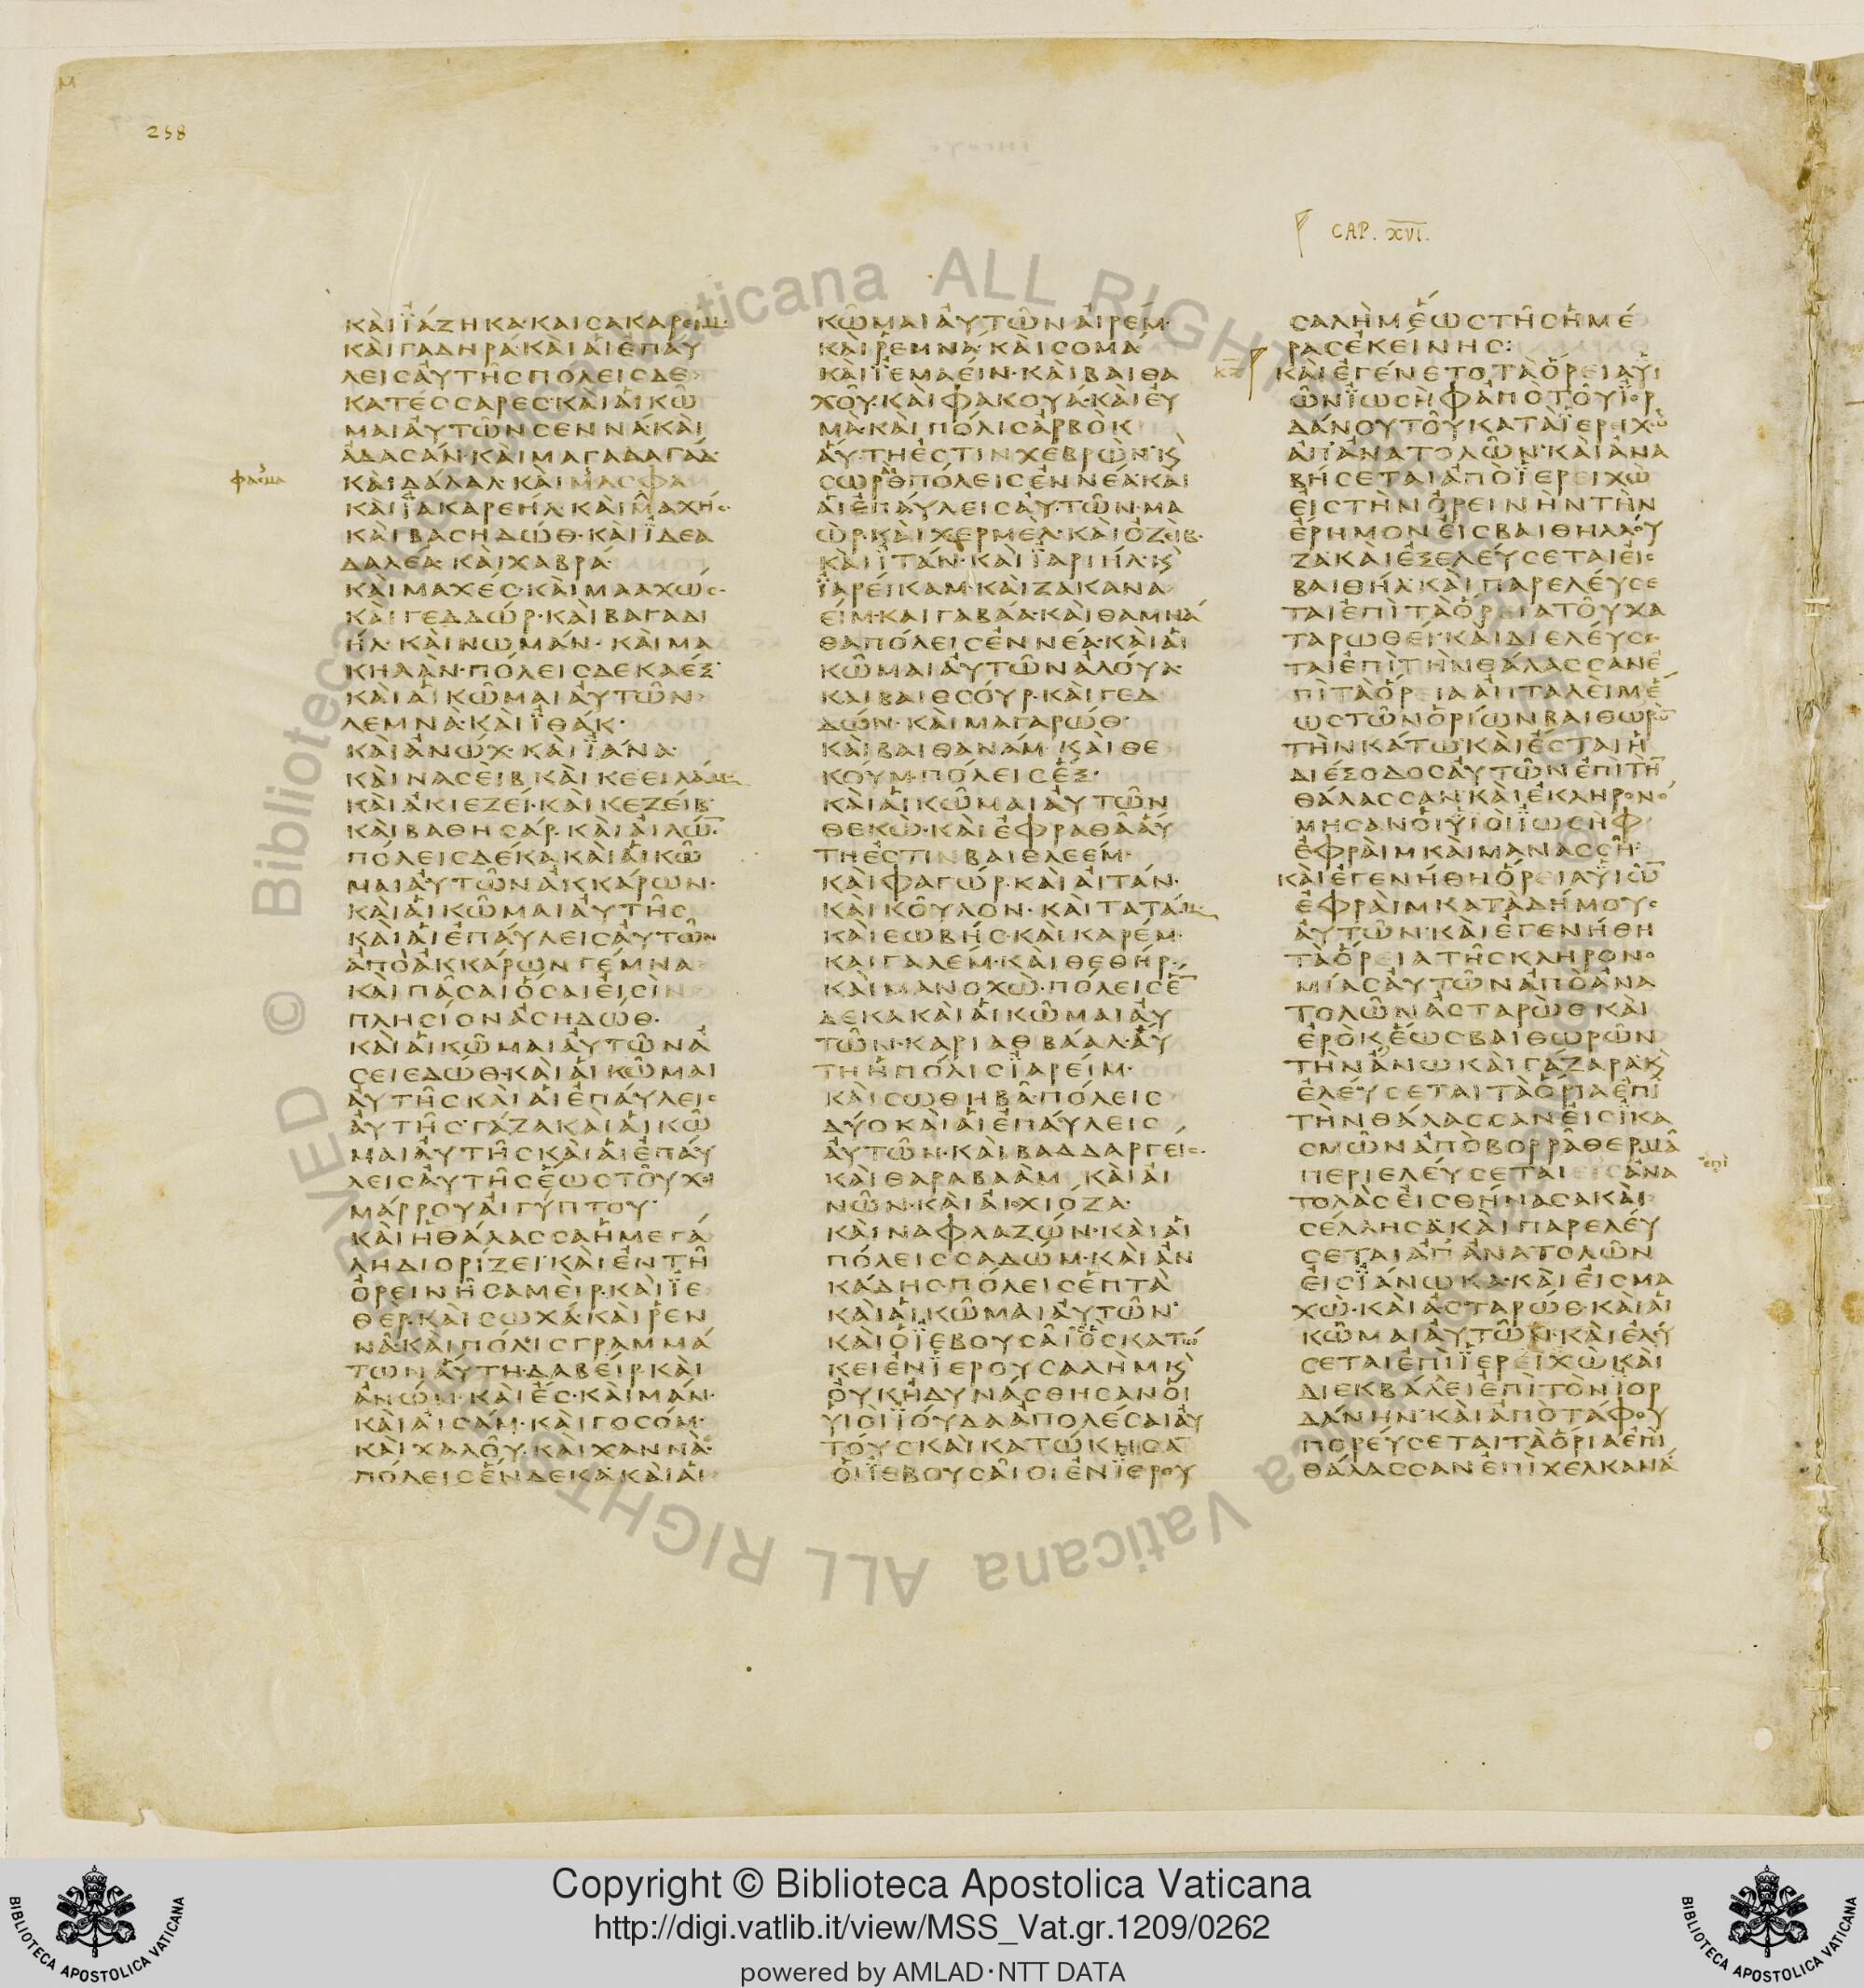 258
CAP. XVI.
ΚΑΙ ΙΑΖΗΚΑ· ΚΑΙ ΣΑΚΑΡΕΙΜ·
ΚΑΙ ΓΑΔΗΡΑ· ΚΑΙ ΑΙ ΕΠΑΥ
ΛΕΙΣ ΑΥΤΗΣ ΠΟΛΕΙΣ ΔΕ
ΚΑΤΕΣΣΑΡΕΣ· ΚΑΙ ΑΙ ΚΩ
ΜΑΙ ΑΥΤΩΝ ΣΕΝΝΑ· ΚΑΙ
ΑΔΑΣΑΝ· ΚΑΙ ΜΑΓΑΔΑΓΑΔ·
φασμα
ΚΑΙ ΔΑΛΑΛ· ΚΑΙ ΜΑΣΦΑ
ΚΑΙ ΙΑΚΑΡΕΗΛ· ΚΑΙ ΜΑΧΗΣ·
ΚΑΙ ΒΑΣΗΔΩΘ· ΚΑΙ ΙΔΕΑ
ΔΑΛΕΑ· ΚΑΙ ΧΑΒΡΑ·
ΚΑΙ ΜΑΧΕΣ· ΚΑΙ ΜΑΑΧΩΣ·
ΚΑΙ ΓΕΔΔΩΡ· ΚΑΙ ΒΑΓΑΔΙ
ΗΛ· ΚΑΙ ΝΩΜΑΝ· ΚΑΙ ΜΑ
ΚΗΔΑΝ· ΠΟΛΕΙΣ ΔΕΚΑ ΕΞ·
ΚΑΙ ΑΙ ΚΩΜΑΙ ΑΥΤΩΝ
ΛΕΜΝΑ· ΚΑΙ ΙΘΑΚ·
ΚΑΙ ΑΝΩΧ· ΚΑΙ ΙΑΝΑ·
ΚΑΙ ΝΑΣΕΙΒ· ΚΑΙ ΚΕΕΙΛΑΜ
ΚΑΙ ΑΚΙΕΖΕΙ· ΚΑΙ ΚΕΖΕΙΒ·
ΚΑΙ ΒΑΘΗΣΑΡ· ΚΑΙ ΑΙΛΩ̅·
ΠΟΛΕΙΣ ΔΕΚΑ ΚΑΙ ΑΙ ΚΩ
ΜΑΙ ΑΥΤΩΝ ΑΚΚΑΡΩΝ·
ΚΑΙ ΑΙ ΚΩΜΑΙ ΑΥΤΗΣ
ΚΑΙ ΑΙ ΕΠΑΥΛΕΙΣ ΑΥΤΩΝ
ΑΠΟ ΑΚΚΑΡΩΝ ΓΕΜΝΑ
ΚΑΙ ΠΑΣΑΙ ΟΣΑΙ ΕΙΣΙΝ
ΠΛΗΣΙΟΝ ΑΣΗΔΩΘ·
ΚΑΙ ΑΙ ΚΩΜΑΙ ΑΥΤΩΝ Α
ΣΕΙΕΔΩΘ· ΚΑΙ ΑΙ ΚΩΜΑΙ
ΑΥΤΗΣ ΚΑΙ ΑΙ ΕΠΑΥΛΕΙΣ
ΑΥΤΗΣ· ΓΑΖΑ ΚΑΙ ΑΙ ΚΩ
ΜΑΙ ΑΥΤΗΣ ΚΑΙ ΑΙ ΕΠΑΥ
ΛΕΙΣ ΑΥΤΗΣ ΕΩΣ ΤΟΥ ΧΙ
ΜΑΡΡΟΥ ΑΙΓΥΠΤΟΥ·
ΚΑΙ Η ΘΑΛΑΣΣΑ Η ΜΕΓΑ
ΛΗ ΔΙΟΡΙΖΕΙ· ΚΑΙ ΕΝ ΤΗ
ΟΡΕΙΝΗ ΣΑΜΕΙΡ· ΚΑΙ ΙΕ
ΘΕΡ· ΚΑΙ ΣΩΧΑ· ΚΑΙ ΡΕΝ
ΝΑ· ΚΑΙ ΠΟΛΙΣ ΓΡΑΜΜΑ
ΤΩΝ ΑΥΤΗ ΔΑΒΕΙΡ· ΚΑΙ
ΑΝΩΝ· ΚΑΙ ΕΣ· ΚΑΙ ΜΑΝ·
ΚΑΙ ΑΙΣΑΜ· ΚΑΙ ΓΟΣΟΜ·
ΚΑΙ ΧΑΛΟΥ· ΚΑΙ ΧΑΝΝΑ·
ΠΟΛΕΙΣ ΕΝΔΕΚΑ· ΚΑΙ ΑΙ
ΚΩΜΑΙ ΑΥΤΩΝ ΑΙΡΕΜ·
ΚΑΙ ΡΕΜΝΑ· ΚΑΙ ΣΟΜΑ
ΚΑΙ ΙΕΜΑΕΙΝ· ΚΑΙ ΒΑΙΘΑ
ΧΟΥ· ΚΑΙ ΦΑΚΟΥΑ· ΚΑΙ ΕΥ
ΜΑ· ΚΑΙ ΠΟΛΙΣ ΑΡΒΟΚ
ΑΥΤΗ ΕΣΤΙΝ ΧΕΒΡΩΝ· Κ̀
ΣΩΡΘ ΠΟΛΕΙΣ ΕΝΝΕΑ· ΚΑΙ
ΑΙ ΕΠΑΥΛΕΙΣ ΑΥΤΩΝ· ΜΑ
ΩΡ· ΚΑΙ ΧΕΡΜΕΛ· ΚΑΙ ΟΖΕΙΒ·
ΚΑΙ ΙΤΑΝ· ΚΑΙ ΙΑΡΙΗΛ· Κ̀
ΙΑΡΕΙΚΑΜ· ΚΑΙ ΖΑΚΑΝΑ
ΕΙΜ· ΚΑΙ ΓΑΒΑΑ· ΚΑΙ ΘΑΜΝΑ
ΘΑ ΠΟΛΕΙΣ ΕΝΝΕΑ· ΚΑΙ ΑΙ
ΚΩΜΑΙ ΑΥΤΩΝ ΑΛΟΥΑ·
ΚΑΙ ΒΑΙΘΣΟΥΡ· ΚΑΙ ΓΕΔ
ΔΩΝ· ΚΑΙ ΜΑΓΑΡΩΘ·
ΚΑΙ ΒΑΙΘΑΝΑΜ· ΚΑΙ ΘΕ
ΚΟΥΜ· ΠΟΛΕΙΣ ΕΞ·
ΚΑΙ ΑΙ ΚΩΜΑΙ ΑΥΤΩΝ
ΘΕΚΩ· ΚΑΙ ΕΦΡΑΘΑ ΑΥ
ΤΗ ΕΣΤΙΝ ΒΑΙΘΛΕΕΜ·
ΚΑΙ ΦΑΓΩΡ· ΚΑΙ ΑΙΤΑΝ·
ΚΑΙ ΚΟΥΛΟΝ· ΚΑΙ ΤΑΤΑΜ
ΚΑΙ ΕΩΒΗΣ· ΚΑΙ ΚΑΡΕΜ·
ΚΑΙ ΓΑΛΕΜ· ΚΑΙ ΘΕΘΗΡ·
ΚΑΙ ΜΑΝΟΧΩ· ΠΟΛΕΙΣ Ε̅
ΔΕΚΑ ΚΑΙ ΑΙ ΚΩΜΑΙ ΑΥ
ΤΩΝ· ΚΑΡΙΑΘΒΑΑΛ· ΑΥ
ΤΗ Η ΠΟΛΙΣ ΙΑΡΕΙΜ·
ΚΑΙ ΣΩΘΗΒΑ· ΠΟΛΕΙΣ
ΔΥΟ ΚΑΙ ΑΙ ΕΠΑΥΛΕΙΣ
ΑΥΤΩΝ· ΚΑΙ ΒΑΔΔΑΡΓΕΙΣ·
ΚΑΙ ΘΑΡΑΒΑΑΜ ΚΑΙ ΑΙ
ΝΩΝ· ΚΑΙ ΑΙΧΙΟΖΑ·
ΚΑΙ ΝΑΦΛΑΖΩΝ· ΚΑΙ ΑΙ
ΠΟΛΕΙΣ ΣΑΔΩΜ· ΚΑΙ ΑΝ
ΚΑΔΗΣ· ΠΟΛΕΙΣ ΕΠΤΑ
ΚΑΙ ΑΙ ΚΩΜΑΙ ΑΥΤΩΝ·
ΚΑΙ Ο ΙΕΒΟΥΣΑΙΟΣ ΚΑΤΩ
ΚΕΙ ΕΝ ΙΕΡΟΥΣΑΛΗΜ Κ̀
ΟΥΚ ΗΔΥΝΑΣΘΗΣΑΝ ΟΙ
ΥΙΟΙ ΙΟΥΔΑ ΑΠΟΛΕΣΑΙ ΑΥ
ΤΟΥΣ ΚΑΙ ΚΑΤΩΚΗΣΑ̅
ΟΙ ΙΕΒΟΥΣΑΙΟΙ ΕΝ ΙΕΡΟΥ
ΣΑΛΗΜ ΕΩΣ ΤΗΣ ΗΜΕ
ΡΑΣ ΕΚΕΙΝΗΣ:
ΚΑΙ ΕΓΕΝΕΤΟ ΤΑ ΟΡΕΙΑ ΥΙ
ΩΝ ΙΩΣΗΦ ΑΠΟ ΤΟΥ ΙΟΡ
ΔΑΝΟΥ ΤΟΥ ΚΑΤΑ ΙΕΡΕΙΧΩ
ΑΠ ΑΝΑΤΟΛΩΝ· ΚΑΙ ΑΝΑ
ΒΗΣΕΤΑΙ ΑΠΟ ΙΕΡΕΙΧΩ
ΕΙΣ ΤΗΝ ΟΡΕΙΝΗΝ ΤΗΝ
ΕΡΗΜΟΝ ΕΙΣ ΒΑΙΘΗΛ ΛΟΥ
ΖΑ· ΚΑΙ ΕΞΕΛΕΥΣΕΤΑΙ ΕΙΣ
ΒΑΙΘΗΛ· ΚΑΙ ΠΑΡΕΛΕΥΣΕ
ΤΑΙ ΕΠΙ ΤΑ ΟΡΕΙΑ ΤΟΥ ΧΑ
ΤΑΡΩΘΕΙ· ΚΑΙ ΔΙΕΛΕΥΣΕ
ΤΑΙ ΕΠΙ ΤΗΝ ΘΑΛΑΣΣΑΝ Ε
ΠΙ ΤΑ ΟΡΕΙΑ ΑΠΤΑΛΕΙΜ Ε
ΩΣ ΤΩΝ ΟΡΙΩΝ ΒΑΙΘΩΡΩ̅
ΤΗΝ ΚΑΤΩ· ΚΑΙ ΕΣΤΑΙ Η
ΔΙΕΞΟΔΟΣ ΑΥΤΩΝ ΕΠΙ ΤΗ̅
ΘΑΛΑΣΣΑΝ· ΚΑΙ ΕΚΛΗΡΟΝΟ
ΜΗΣΑΝ ΟΙ ΥΙΟΙ ΙΩΣΗΦ
ΕΦΡΑΙΜ ΚΑΙ ΜΑΝΑΣΣΗ·
ΚΑΙ ΕΓΕΝΗΘΗ ΟΡΕΙΑ ΥΙΩ̅
ΕΦΡΑΙΜ ΚΑΤΑ ΔΗΜΟΥΣ
ΑΥΤΩΝ· ΚΑΙ ΕΓΕΝΗΘΗ
ΤΑ ΟΡΕΙΑ ΤΗΣ ΚΛΗΡΟΝΟ
ΜΙΑΣ ΑΥΤΩΝ ΑΠΟ ΑΝΑ
ΤΟΛΩΝ ΑΣΤΑΡΩΘ ΚΑΙ
ΕΡΟΚ ΕΩΣ ΒΑΙΘΩΡΩΝ
ΤΗΝ ΑΝΩ ΚΑΙ ΓΑΖΑΡΑ· Κ̀
ΕΛΕΥΣΕΤΑΙ ΤΑ ΟΡΙΑ ΕΠΙ
ΤΗΝ ΘΑΛΑΣΣΑΝ ΕΙΣ ΙΚΑ
ΣΜΩΝ ΑΠΟ ΒΟΡΡΑ ΘΕΡΜΑ
ΠΕΡΙΕΛΕΥΣΕΤΑΙ ΕΙΣ ΑΝΑ
επι
ΤΟΛΑΣ ΕΙΣ ΘΗΝΑΣΑ ΚΑΙ
ΣΕΛΛΗΣΑ· ΚΑΙ ΠΑΡΕΛΕΥ
ΣΕΤΑΙ ΑΠ ΑΝΑΤΟΛΩΝ
ΕΙΣ ΙΑΝΩΚΑ· ΚΑΙ ΕΙΣ ΜΑ
ΧΩ· ΚΑΙ ΑΣΤΑΡΩΘ· ΚΑΙ ΑΙ
ΚΩΜΑΙ ΑΥΤΩΝ· ΚΑΙ ΕΛΕΥ
ΣΕΤΑΙ ΕΠΙ ΙΕΡΕΙΧΩ ΚΑΙ
ΔΙΕΚΒΑΛΕΙ ΕΠΙ ΤΟΝ ΙΟΡ
ΔΑΝΗΝ· ΚΑΙ ΑΠΟ ΤΑΦΟΥ
ΠΟΡΕΥΣΕΤΑΙ ΤΑ ΟΡΙΑ ΕΠΙ
ΘΑΛΑΣΣΑΝ ΕΠΙ ΧΕΛΚΑΝΑ
© Biblioteca Vaticana ALL RIGHTS RESERVED
Copyright © Biblioteca Apostolica Vaticana
http://digi.vatlib.it/view/MSS_Vat.gr.1209/0262
powered by AMLAD·NTT DATA
BIBLIOTECA APOSTOLICA VATICANA
BIBLIOTECA APOSTOLICA VATICANA